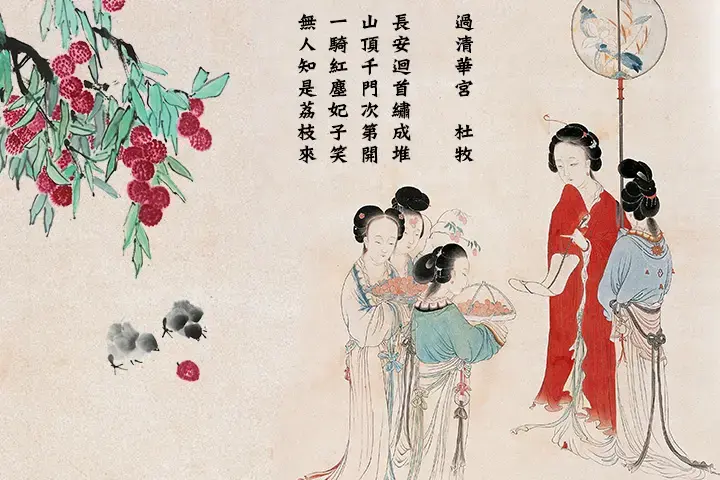 過清華宮 杜牧
長安迴首繡成堆
山頂千門次第開
一騎紅塵妃子笑
無人知是荔枝來